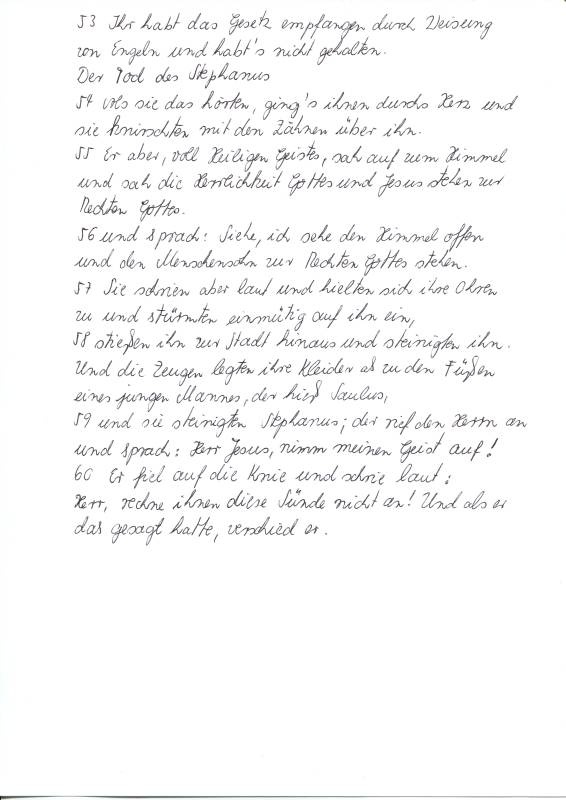 53 Ihr habt das Gesetz empfangen durch Weisung
von Engeln und habt's nicht gehalten.
Der Tod des Stephanus
54 Als sie das hörten, ging's ihnen durchs Herz und
sie knirschten mit den Zähnen über ihn.
55 Er aber, voll Heiligen Geistes, sah auf zum Himmel
und sah die Herrlichkeit Gottes und Jesus stehen zur
Rechten Gottes.
56 und sprach: Siehe, ich sehe den Himmel offen
und den Menschensohn zur Rechten Gottes stehen.
57 Sie schrien aber laut und hielten sich ihre Ohren
zu und stürmten einmütig auf ihn ein,
58 stießen ihn zur Stadt hinaus und steinigten ihn.
Und die Zeugen legten ihre Kleider ab zu den Füßen
eines jungen Mannes, der hieß Saulus,
59 und sie steinigten Stephanus; der rief den Herrn an
und sprach: Herr Jesus, nimm meinen Geist auf!
60 Er fiel auf die Knie und schrie laut:
Herr, rechne ihnen diese Sünde nicht an! Und als er
das gesagt hatte, verschied er.